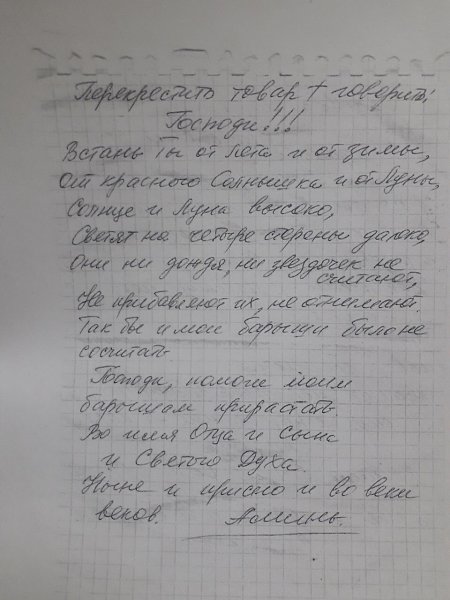 Перекрестить товар + говорить:
Господи!!!
Встань Ты от лета и от зимы,
От красного Солнышка и от Луны,
Солнце и Луна высоко,
Светят на четыре стороны далеко,
Они ни дождя, ни звездочек не
считают,
Не прибавляют их, не отнимают.
Так бы и мои барыши было не
сосчитать
Господи, помоги моим
барышам прирастать.
Во имя Отца и Сына
и Святого Духа.
Ныне и присно и во веки
веков. Аминь.